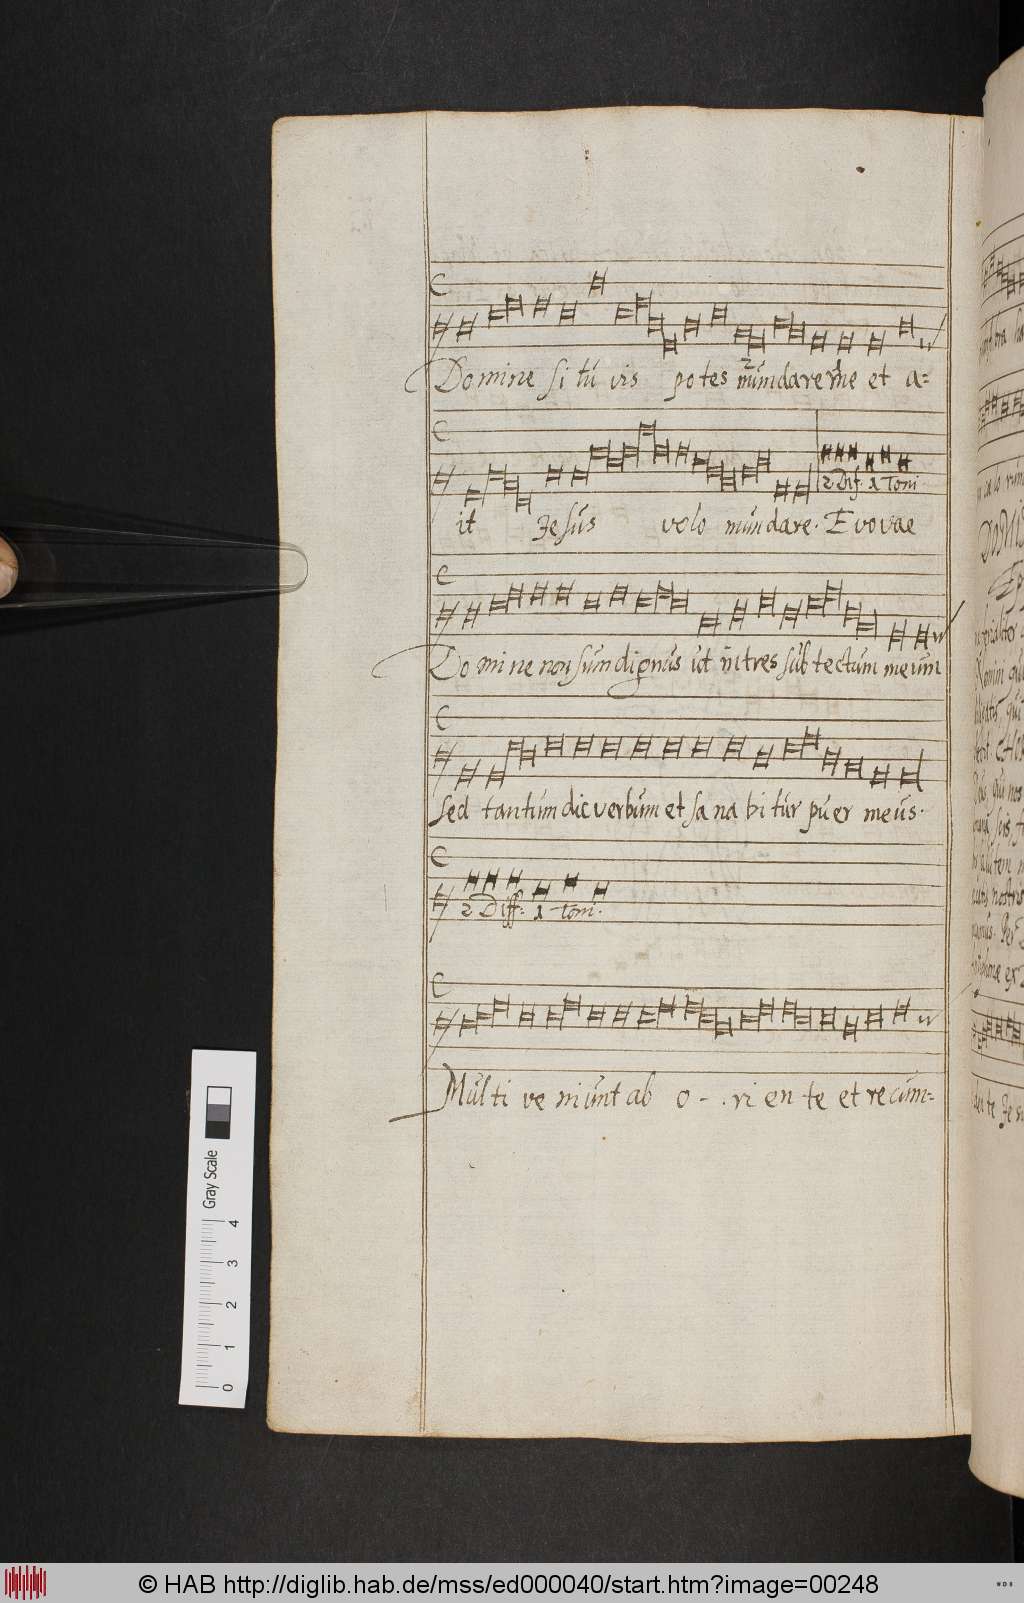 Domine si tu vis potes mundare me et a=
2 Dif. 1 Toni
it Jesus volo mundare. Evovae
Domine non sum dignus ut intres sub tectum meum
Sed tantum dic verbum et sanabitur puer meus.
2 Diff: 1 toni.
Multi veniunt ab o - . riente et recum=
Gray Scale
4
3
2
1
0
© HAB http://diglib.hab.de/mss/ed000040/start.htm?image=00248